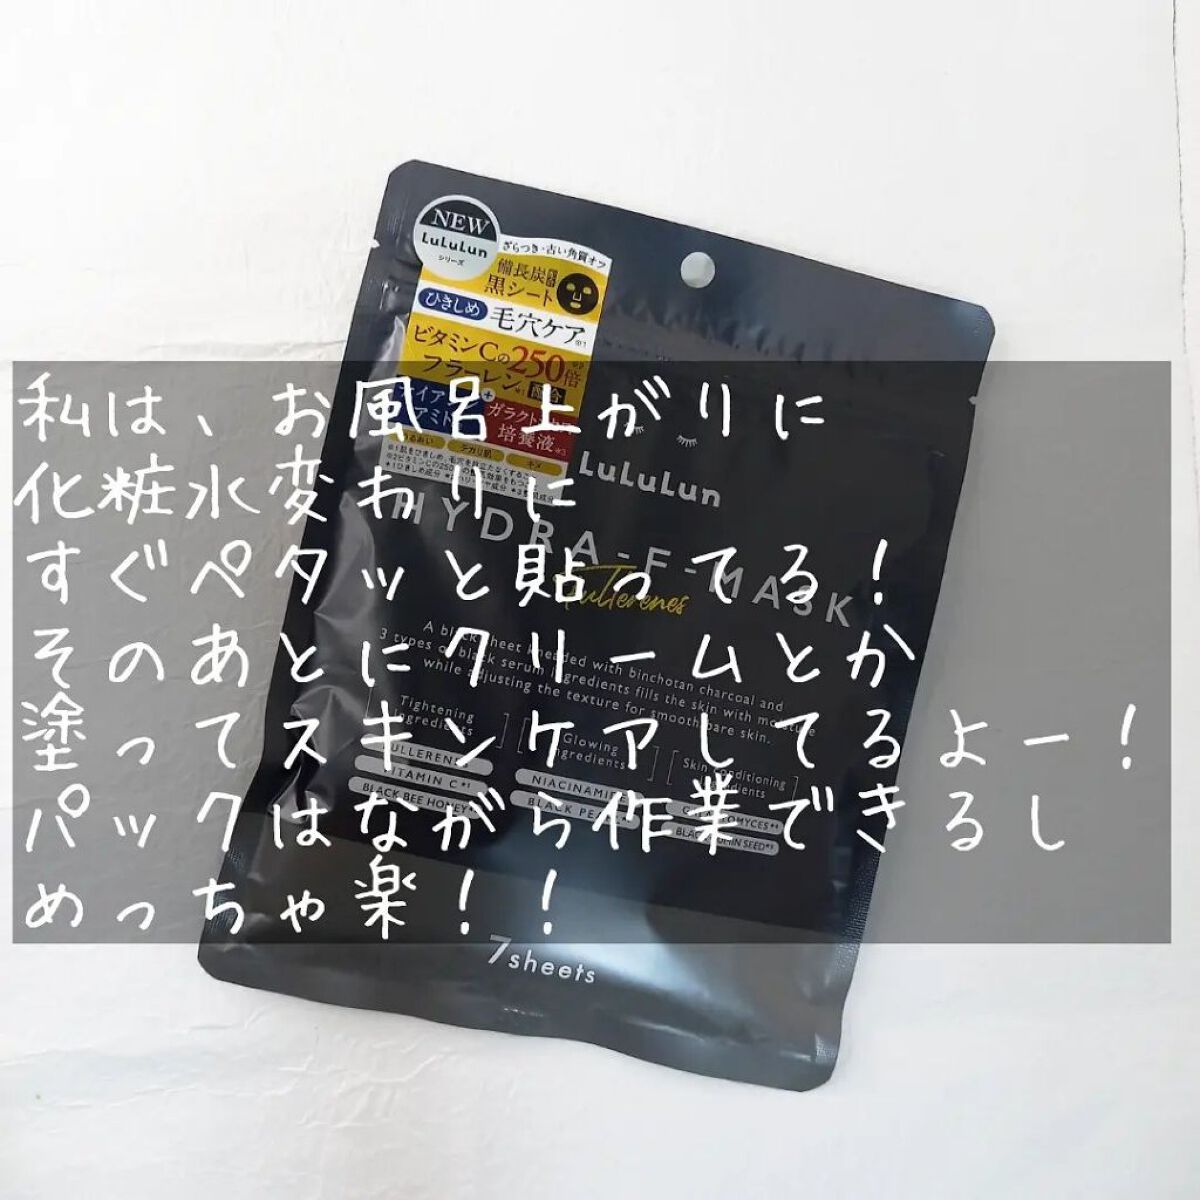 NEW
LuLuLun
シリーズ
ざらつき・古い角質オフ
備長炭
黒シート
ひきしめ 毛穴ケア
ビタミンCの250倍
フラーレン 配合
ガラクトミセス
培養液
キメ
私は、お風呂上がりに
化粧水変わりに
すぐペタッと貼ってる！
そのあとにクリームとか
塗ってスキンケアしてるよー！
パックはながら作業できるし
めっちゃ楽！！
LuLuLun
HYDRA-F-MASK
Fullerenes
A black sheet kneaded with binchotan charcoal and
3 types of black serum ingredients fills the skin with moisture
while adjusting the texture for smooth bare skin.
Tightening
Ingredients
FULLERENE
VITAMIN C
BLACK BEE HONEY
Glowing
Ingredients
NIACINAMIDE
BLACK PEARL
Skin Conditioning
Ingredients
GALACTOMYCES
7sheets